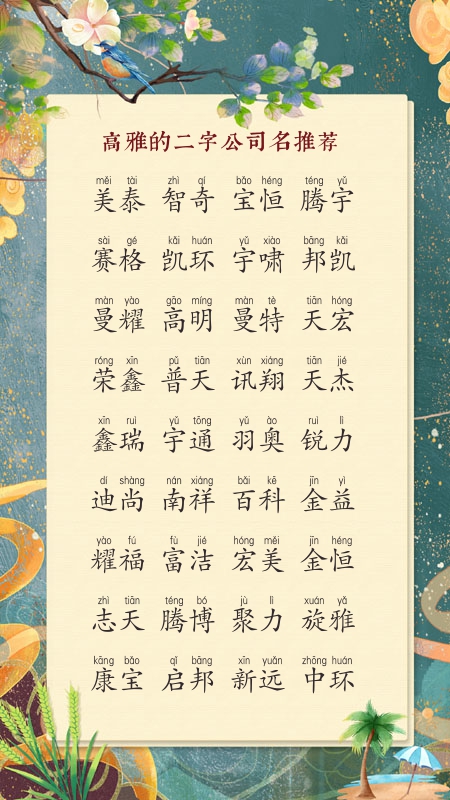 高雅的二字公司名推荐
měi tài zhì qí bǎo héng téng yǔ
美泰 智奇 宝恒 腾宇
sài gé kǎi huán yǔ xiào bāng kǎi
赛格 凯环 宇啸 邦凯
màn yào gāo míng màn tè tiān hóng
曼耀 高明 曼特 天宏
róng xīn pǔ tiān xùn xiáng tiān jié
荣鑫 普天 讯翔 天杰
xīn ruì yǔ tōng yǔ ào ruì lì
鑫瑞 宇通 羽奥 锐力
dí shàng nán xiáng bǎi kē jīn yì
迪尚 南祥 百科 金益
yào fú fù jié hóng měi jīn héng
耀福 富洁 宏美 金恒
zhì tiān téng bó jù lì xuán yǎ
志天 腾博 聚力 旋雅
kāng bǎo qǐ bāng xīn yuǎn zhōng huán
康宝 启邦 新远 中环